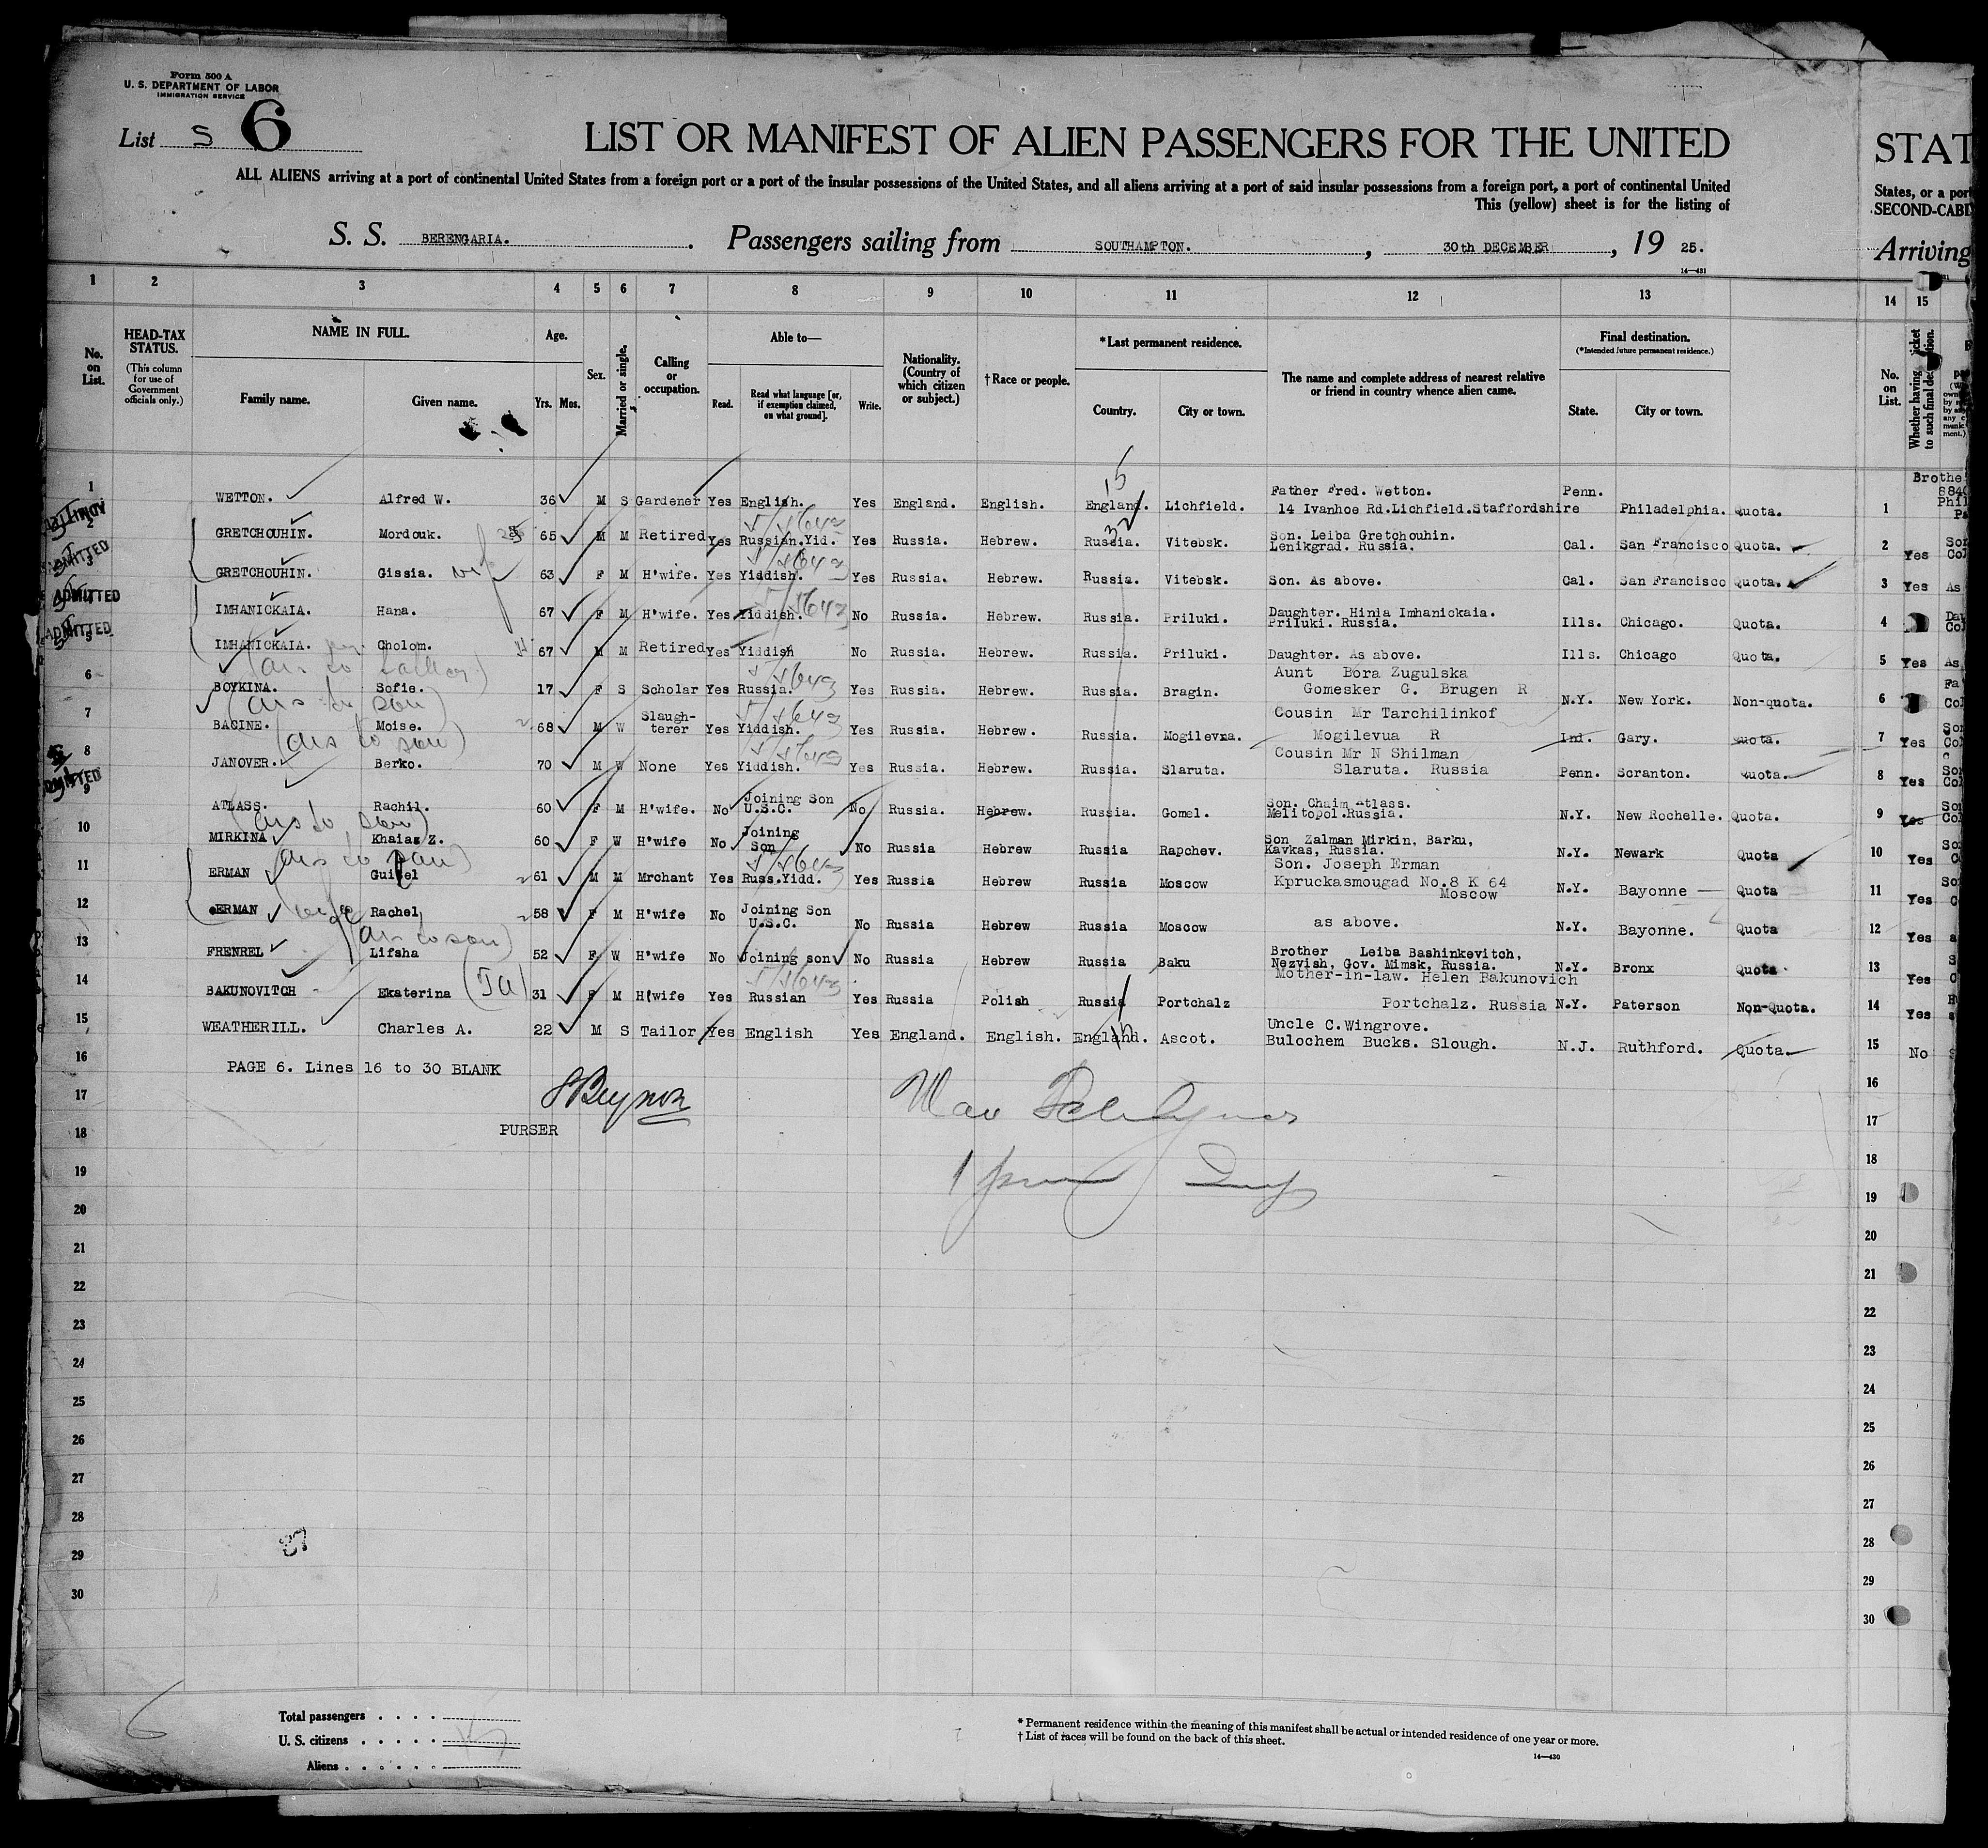 Form 500 A
U. S. DEPARTMENT OF LABOR
IMMIGRATION SERVICE
List S 6
LIST OR MANIFEST OF ALIEN PASSENGERS FOR THE UNITED STAT
ALL ALIENS arriving at a port of continental United States from a foreign port or a port of the insular possessions of the United States, and all aliens arriving at a port of said insular possessions from a foreign port, a port of continental United States, or a por
This (yellow) sheet is for the listing of SECOND-CABI
S. S. BERENGARIA. Passengers sailing from SOUTHAMPTON. , 30th DECEMBER , 19 25. Arriving
14—431
1 2 3 4 5 6 7 8 9 10 11 12 13 14 15
No. on List.
HEAD-TAX STATUS.
(This column for use of Government officials only.)
NAME IN FULL.
Family name. Given name.
Age.
Yrs. Mos.
Sex.
Married or single.
Calling or occupation.
Able to—
Read. Read what language [or, if exemption claimed, on what ground]. Write.
Nationality. (Country of which citizen or subject.)
†Race or people.
*Last permanent residence.
Country. City or town.
The name and complete address of nearest relative or friend in country whence alien came.
Final destination.
(*Intended future permanent residence.)
State. City or town.
No. on List.
Whether having ticket to such final destination.
1 WETTON. Alfred W. 36 M S Gardener Yes English. Yes England. English. England. Lichfield. Father Fred. Wetton. 14 Ivanhoe Rd.Lichfield.Staffordshire Penn. Philadelphia. Quota. 1
15
2 GRETCHOUHIN. Mordouk. 65 M M Retired Yes Russian.Yid. Yes Russia. Hebrew. Russia. Vitebsk. Son. Leiba Gretchouhin. Lenikgrad. Russia. Cal. San Francisco Quota. 2 Yes
3 GRETCHOUHIN. Gissia. wife 63 F M H'wife. Yes Yiddish. Yes Russia. Hebrew. Russia. Vitebsk. Son. As above. Cal. San Francisco Quota. 3 Yes As
ADMITTED
4 IMHANICKAIA. Hana. 67 F M H'wife. Yes Yiddish. No Russia. Hebrew. Russia. Priluki. Daughter. Hinia Imhanickaia. Priluki. Russia. Ills. Chicago. Quota. 4
ADMITTED
5 IMHANICKAIA. Cholom. 67 M M Retired Yes Yiddish No Russia. Hebrew. Russia. Priluki. Daughter. As above. Ills. Chicago Quota. 5 Yes As
6 BOYKINA. Sofie. 17 F S Scholar Yes Russia. Yes Russia. Hebrew. Russia. Bragin. Aunt Bora Zugulska Gomesker G. Brugen R N.Y. New York. Non-quota. 6
7 BACINE. Moise. 68 M W Slaugh-terer Yes Yiddish. Yes Russia. Hebrew. Russia. Mogilevna. Cousin Mr Tarchilinkof Mogilevua R Ind. Gary. Quota. 7 Yes
8 JANOVER. Berko. 70 M W None Yes Yiddish. Yes Russia. Hebrew. Russia. Slaruta. Cousin Mr N Shilman Slaruta. Russia Penn. Scranton. Quota. 8 Yes
9 ATLASS. Rachil. 60 F M H'wife. No Joining Son U.S.C. No Russia. Hebrew. Russia. Gomel. Son. Chaim Atlass. Melitopol.Russia. N.Y. New Rochelle. Quota. 9 Yes
10 MIRKINA Khaias Z. 60 F W H'wife No Joining Son No Russia Hebrew Russia Rapchev. Son Zalman Mirkin, Barku, Kavkas, Russia. N.Y. Newark Quota 10 Yes
11 ERMAN Guitel 61 M M Mrchant Yes Russ.Yidd. Yes Russia Hebrew Russia Moscow Son. Joseph Erman Kpruckasmougad No.8 K 64 Moscow N.Y. Bayonne Quota 11 Yes
12 ERMAN wife Rachel 58 F M H'wife No Joining Son U.S.C. No Russia Hebrew Russia Moscow as above. N.Y. Bayonne. Quota 12 Yes
13 FRENREL Lifsha 52 F W H'wife No Joining son No Russia Hebrew Russia Baku Brother Leiba Bashinkevitch, Nezvish, Gov. Mimsk, Russia. N.Y. Bronx Quota 13 Yes
14 BAKUNOVITCH Ekaterina 31 F M H'wife Yes Russian Yes Russia Polish Russia Portchalz Mother-in-law. Helen Bakunovich Portchalz. Russia N.Y. Paterson Non-Quota. 14 Yes
15 WEATHERILL. Charles A. 22 M S Tailor Yes English Yes England. English. England. Ascot. Uncle C.Wingrove. Bulochem Bucks. Slough. N.J. Ruthford. Quota. 15 No
16 PAGE 6. Lines 16 to 30 BLANK 16
17 17
18 PURSER 18
19 19
20 20
21 21
22 22
23 23
24 24
25 25
26 26
27 27
28 28
29 29
30 30
Total passengers
U. S. citizens
Aliens
* Permanent residence within the meaning of this manifest shall be actual or intended residence of one year or more.
† List of races will be found on the back of this sheet.
14—430